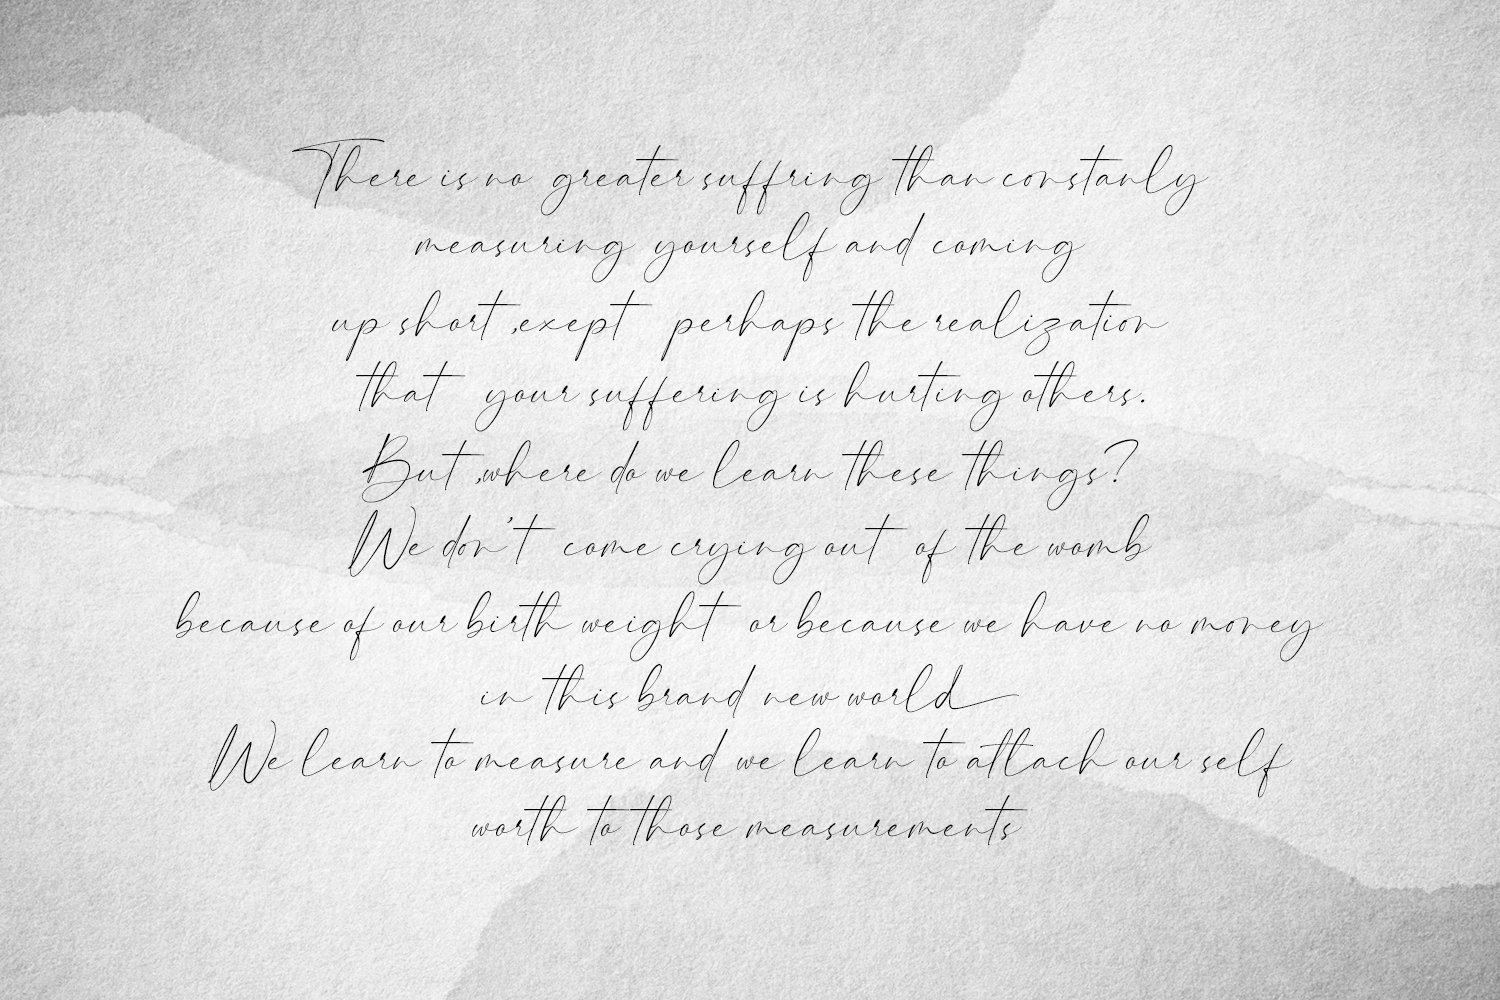 There is no greater suffring than constanly
measuring yourself and coming
up short ,exept perhaps the realization
that your suffering is hurting others.
But ,where do we learn these things?
We don't come crying out of the womb
because of our birth weight or because we have no money
in this brand new world
We learn to measure and we learn to attach our self
worth to those measurements